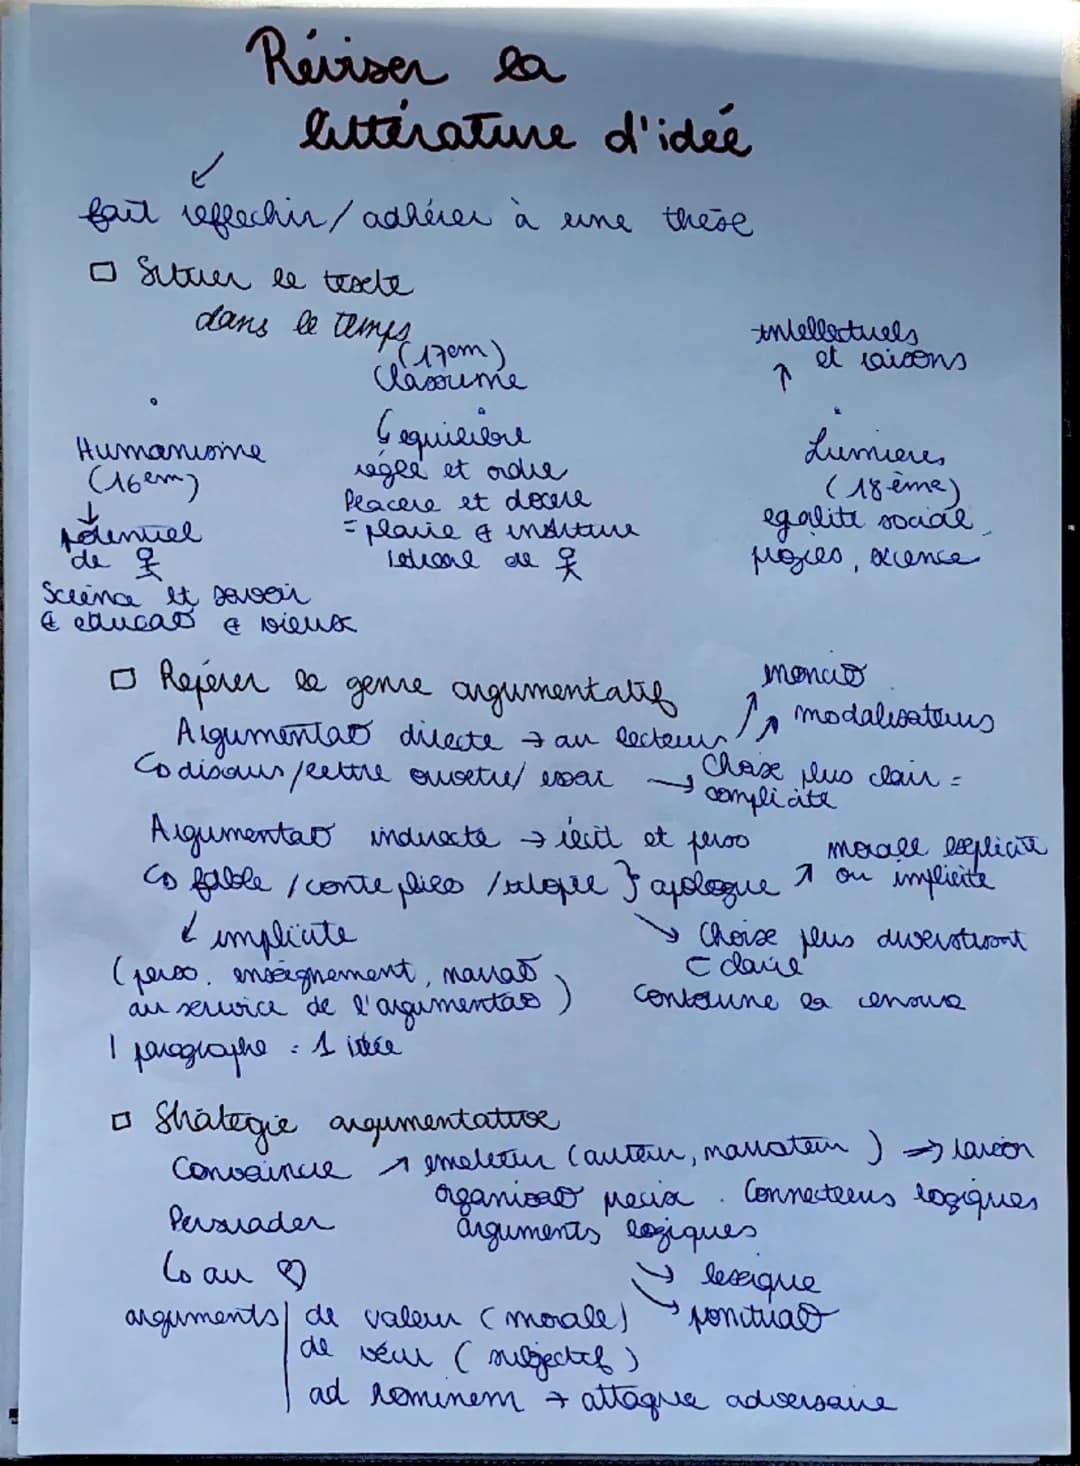 Réviser la
littérature d'idée
fait reflechir / adhérer à une thèse
Situer le texte
dans le temps
(17em)
Classisme
equilibre
règle et ordre
Placere et docere
= plaire & instruire
de
intellectuels
et raisons
Humanisme
(16em)
potentiel
de
Science et savoir
& educat° & vieux
Lumieres
(18ème)
egalité social
progres, science
Repérer le genre argumentatif
Argumentat° directe → au lecteur
discours / lettre ouverte / essai
modalisateurs
Chose plus clair =
complicité
Argumentat° indirecte → récit et perso
fable / conte philo / utopie } apologue
morale explicite
ou implicite
implicite
(perso, enseignement, narrat°
au service de l'argumentat°)
1 paragraphe = 1 idée
Choise plus divertissant
claire
Contourne la censure
Stratégie argumentative
Convaincre emetteur (auteur, narrateur) ⇒ raison
organisat° precise. Connecteurs logiques
arguments logiques
Persuader
au ♡
lexique
ponctuat°
arguments de valeur (morale)
de vécu (subjectif)
ad hominem → attaque adversaire